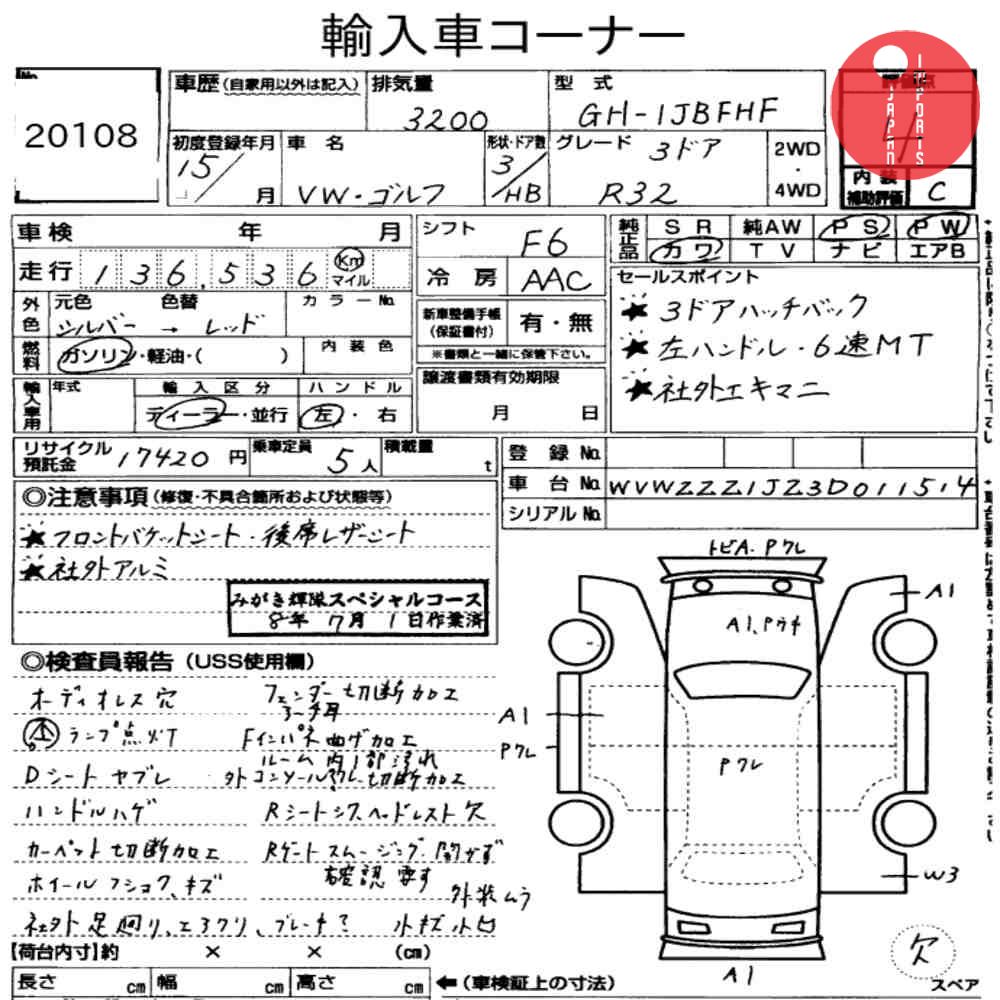 輸入車コーナー
No.
20108
車歴(自家用以外は記入)
排気量
3200
型式
GH-1JBFHF
評価点
4
JAPAN
IMPORTS
初度登録年月
15/
月
車名
VW・ゴルフ
形状・ドア数
3/HB
グレード 3ドア
R32
2WD
・
4WD
内装
補助評価
C
車検 年 月
走行 136,536 Km
マイル
シフト
F6
冷房
AAC
純正品
SR 純AW PS PW
カワ TV ナビ エアB
外色
元色 色替 カラーNo.
シルバー → レッド
燃料
ガソリン・軽油・( )
内装色
新車整備手帳
(保証書付)
有・無
※書類と一緒に保管下さい。
セールスポイント
★3ドアハッチバック
★左ハンドル・6速MT
★社外エキマニ
輸入車用
年式
輸入区分
ディーラー・並行
ハンドル
左・右
譲渡書類有効期限
月 日
リサイクル
預託金
17420円
乗車定員
5人
積載量
t
登録No.
車台No. WVWZZZ1JZ3D011514
シリアルNo.
◎注意事項(修復・不具合箇所および状態等)
★フロントバケットシート・後席レザーシート
★社外アルミ
みがき輝隊スペシャルコース
8年 7月 1日作業済
◎検査員報告(USS使用欄)
オーディオレス穴
ランプ点灯
Dシートヤブレ
ハンドルハゲ
カーペット切断加工
ホイールフショク、キズ
フェンダー切断加工
アーチ耳
Fインパネ曲げ加工
ルーム内1部汚れ
Rシートシワ ヘッドレスト欠
Rゲートスムージング、開かず
確認要す
外装ムラ
小キズ小凹
トビA・Pワレ
A1
A1、Pウキ
A1
Pワレ
Pワレ
W3
A1
欠
スペア
【荷台内寸】約 × × (cm)
長さ cm 幅 cm 高さ cm
←(車検証上の寸法)